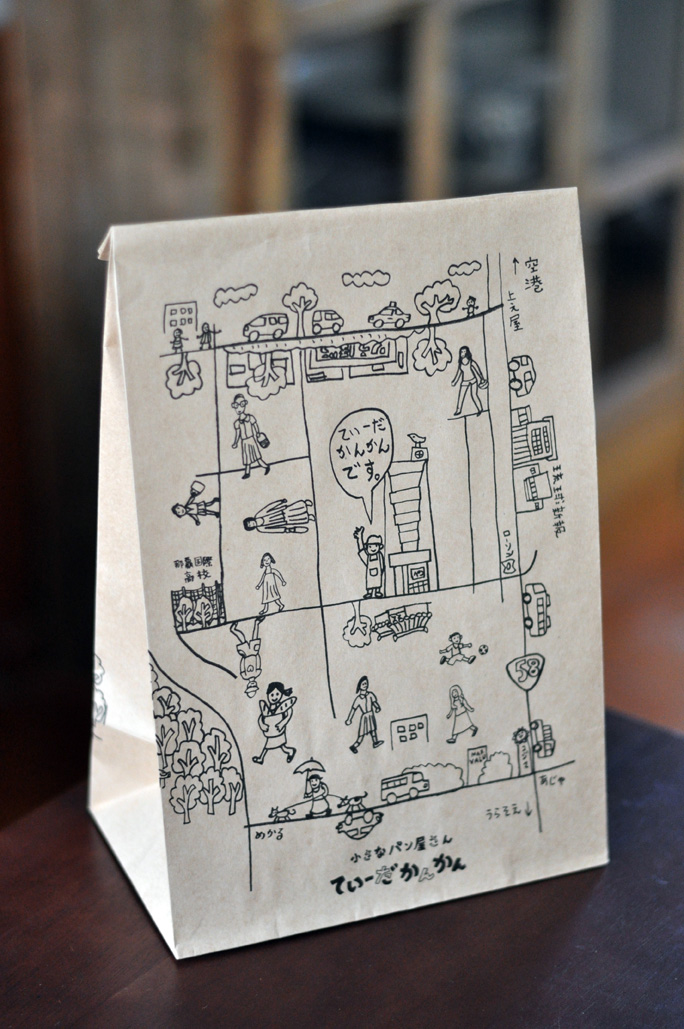 ↑空港
上え屋
てぃーだ
かんかん
です。
琉球新報
ローソン
那覇国際
高校
58
MAX
VALU
あじゃ
うらそえ↓
めかる
小さなパン屋さん
てぃーだかんかん